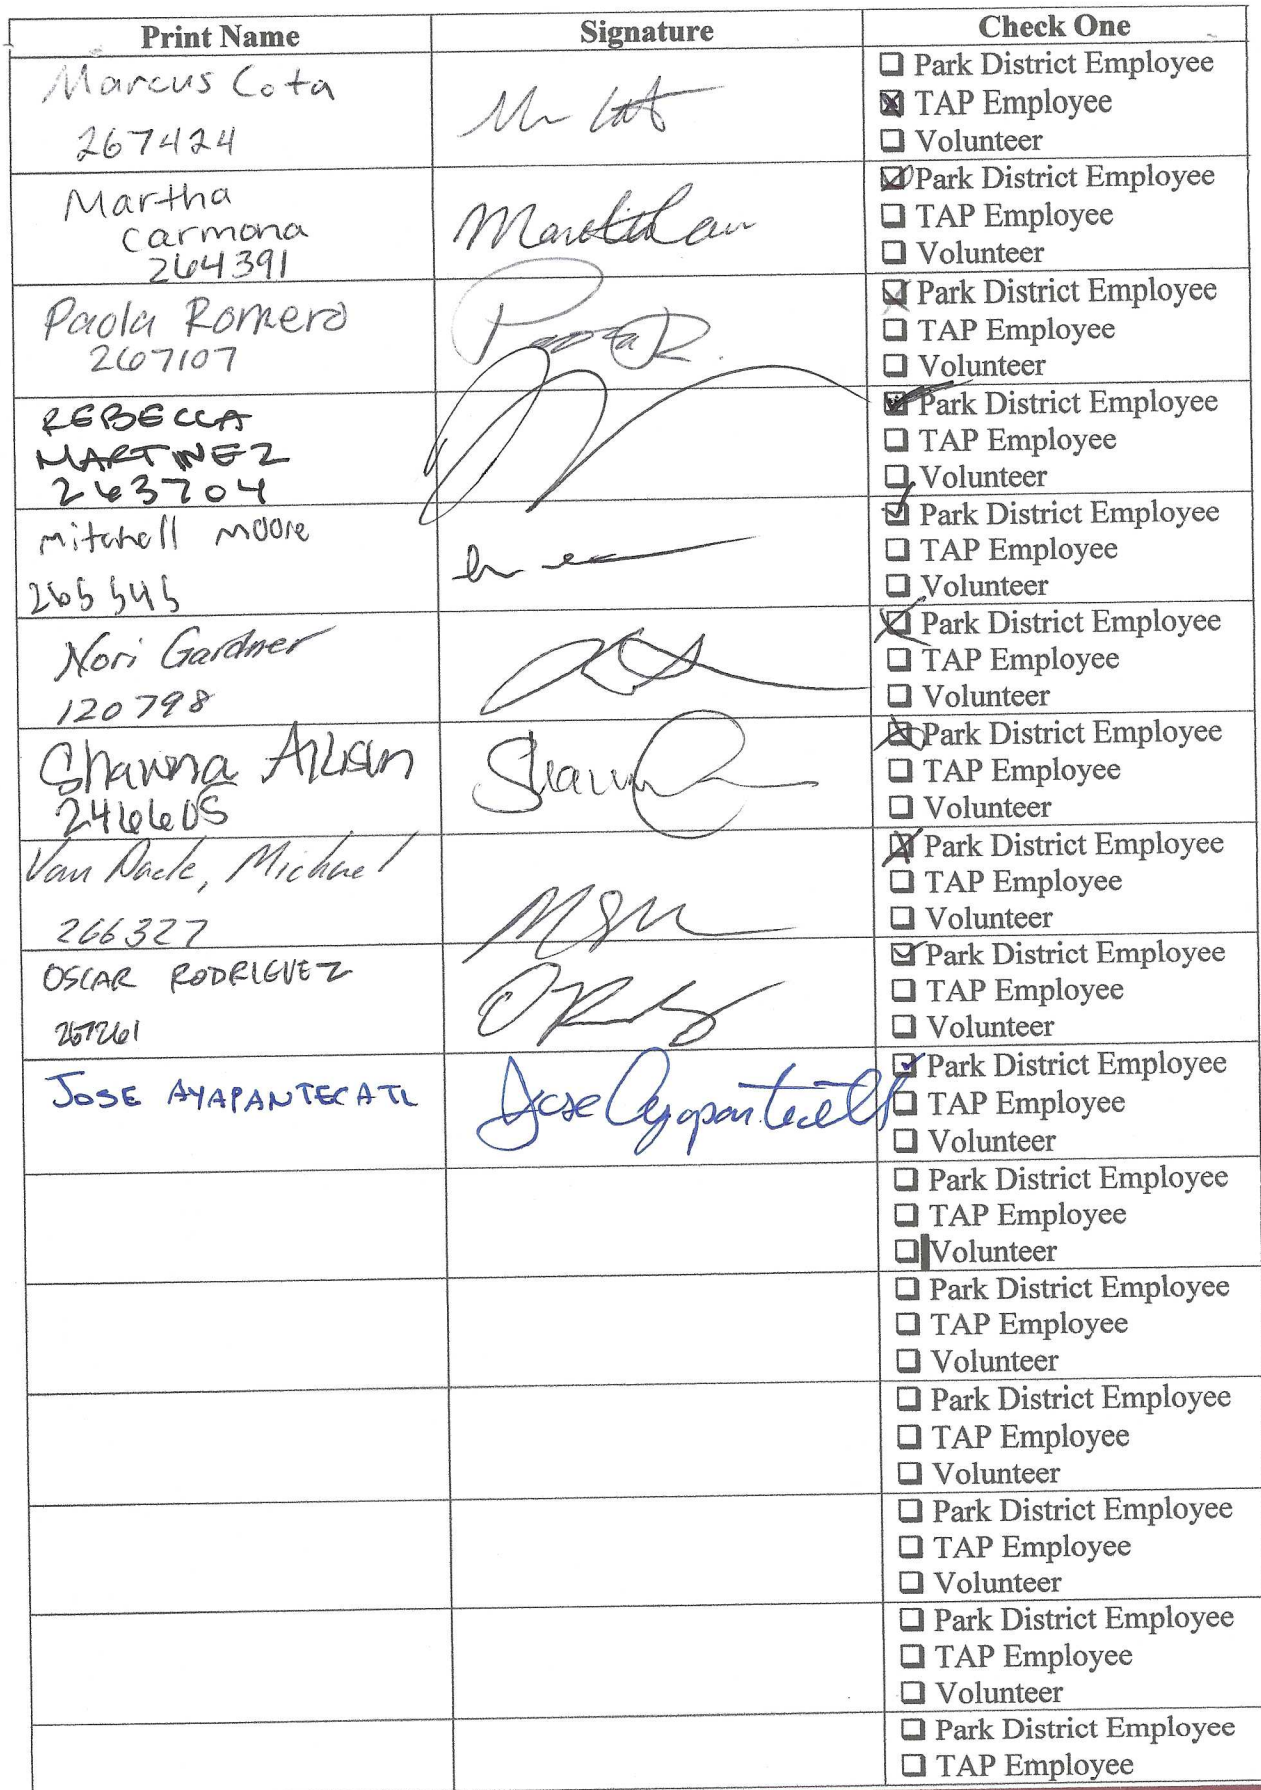 Print Name Signature Check One
Marcus Cota
267424
☐ Park District Employee
☒ TAP Employee
☐ Volunteer
Martha
Carmona
264391
☑ Park District Employee
☐ TAP Employee
☐ Volunteer
Paola Romero
267107
☑ Park District Employee
☐ TAP Employee
☐ Volunteer
REBECCA
MARTINEZ
263704
☑ Park District Employee
☐ TAP Employee
☐ Volunteer
mitchell moore
265545
☑ Park District Employee
☐ TAP Employee
☐ Volunteer
Nori Gardner
120798
☒ Park District Employee
☐ TAP Employee
☐ Volunteer
Shawna
246605
Shawn
☒ Park District Employee
☐ TAP Employee
☐ Volunteer
Van Daele, Michael
266327
☒ Park District Employee
☐ TAP Employee
☐ Volunteer
OSCAR RODRIGUEZ
267261
☑ Park District Employee
☐ TAP Employee
☐ Volunteer
JOSE AYAPANTECATL Jose Ayapantecatl
☑ Park District Employee
☐ TAP Employee
☐ Volunteer
☐ Park District Employee
☐ TAP Employee
☐ Volunteer
☐ Park District Employee
☐ TAP Employee
☐ Volunteer
☐ Park District Employee
☐ TAP Employee
☐ Volunteer
☐ Park District Employee
☐ TAP Employee
☐ Volunteer
☐ Park District Employee
☐ TAP Employee
☐ Volunteer
☐ Park District Employee
☐ TAP Employee